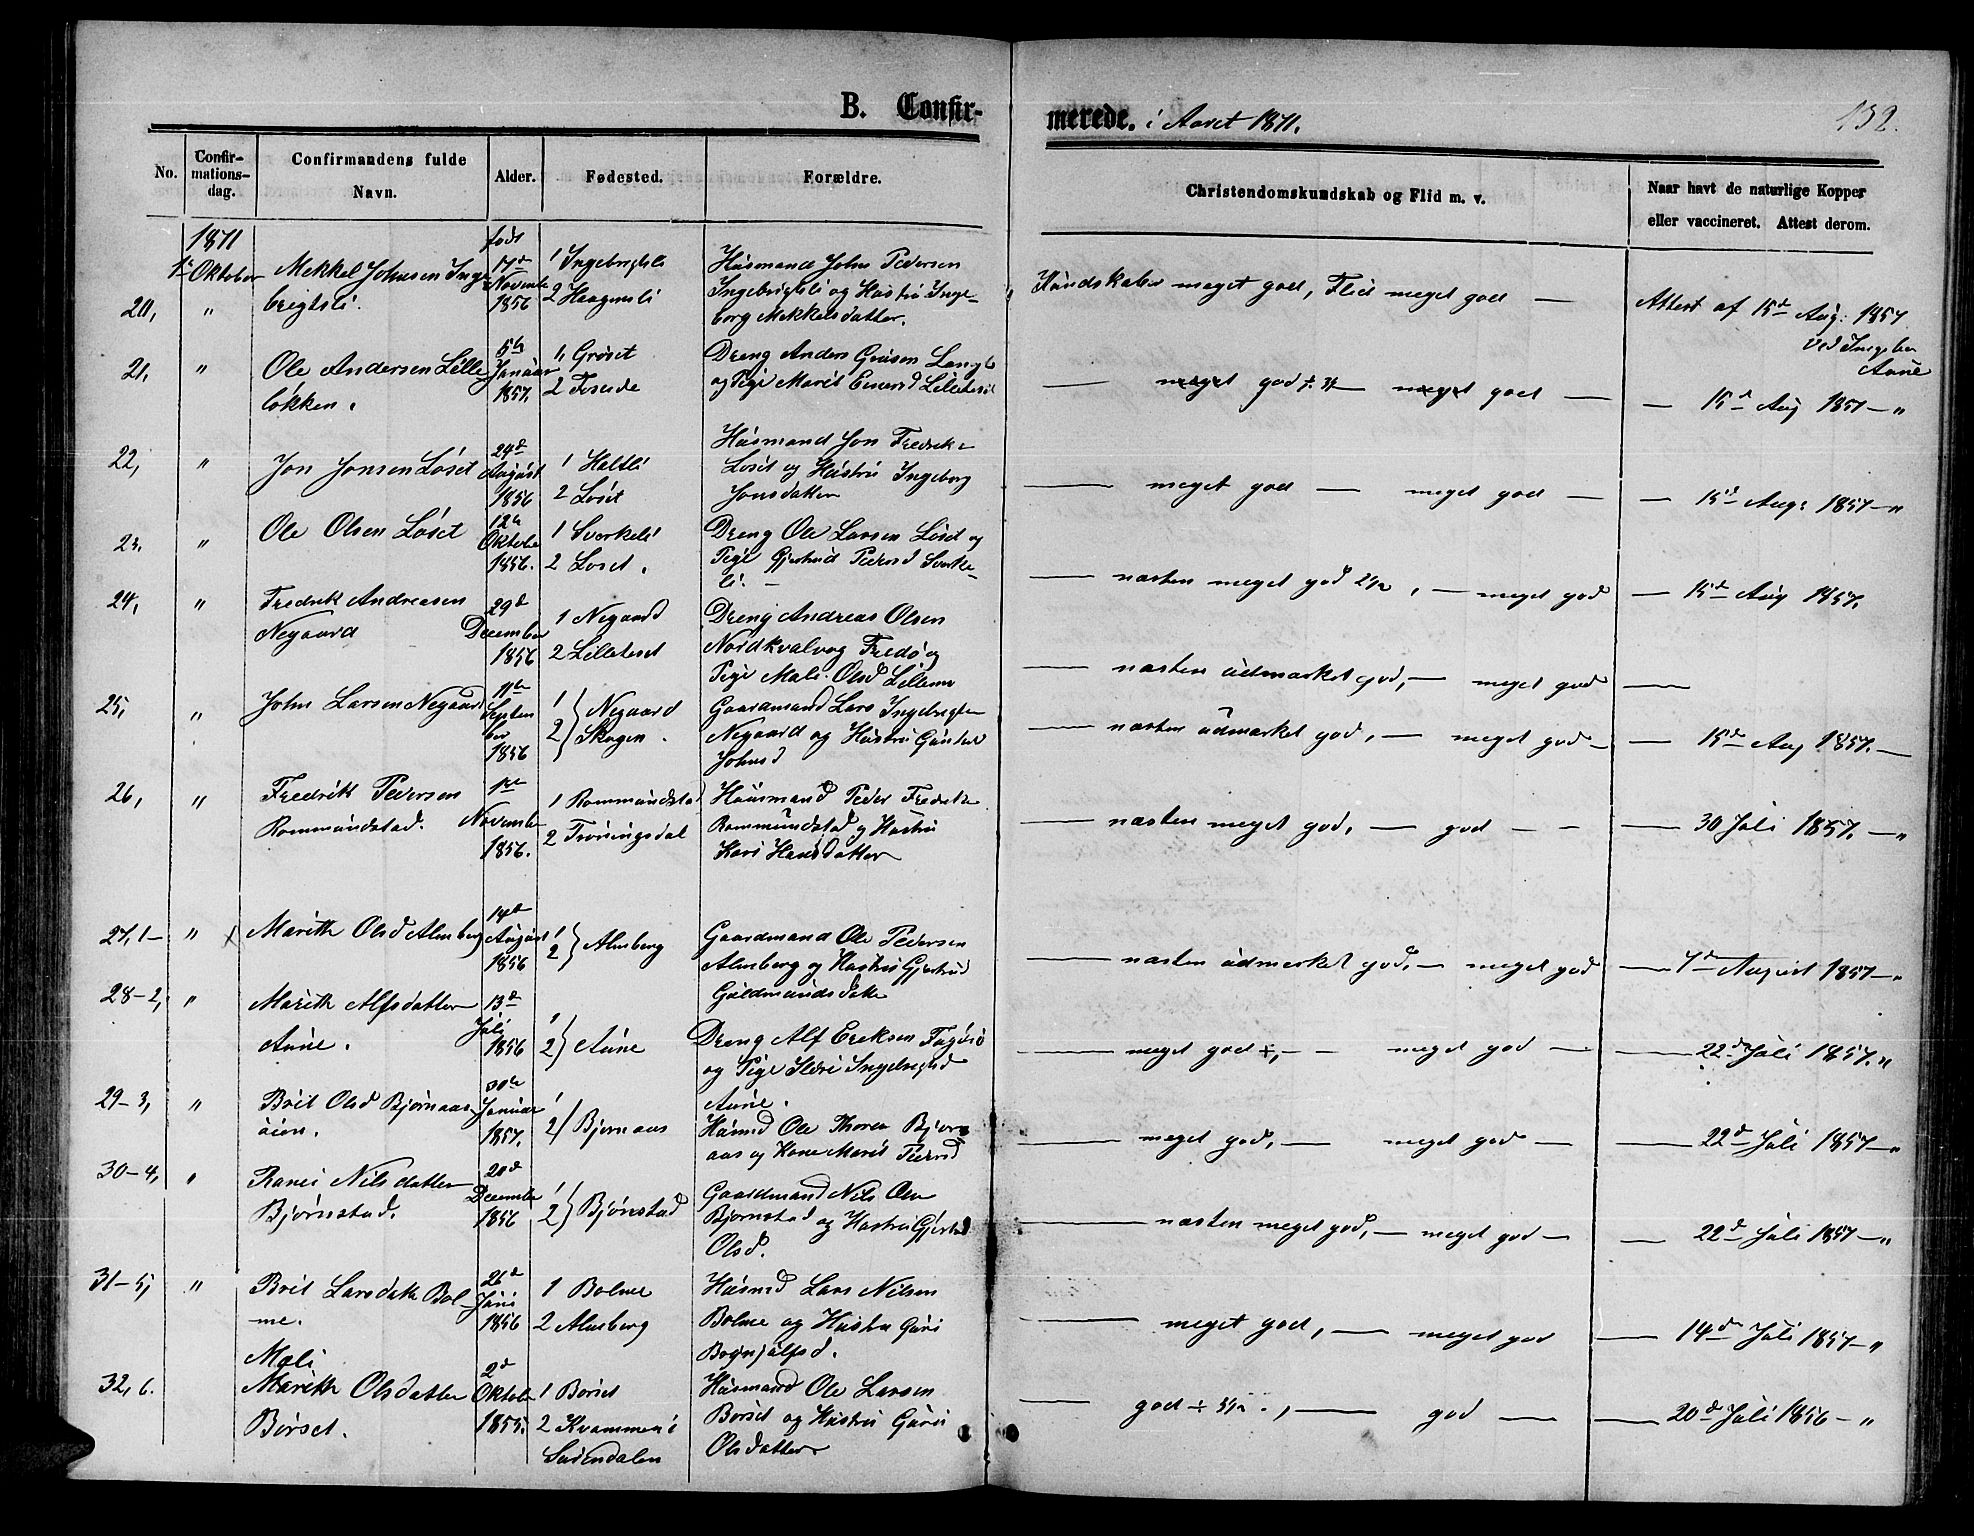 B. Confir-
merede. i Aaret 1871.
132.
No.
Confir-
mations-
dag.
Confirmandens fulde
Navn.
Alder.
Fødested.
Forældre.
Christendomskundskab og Flid m. v.
Naar havt de naturlige Kopper
eller vaccineret. Attest derom.
1871
1ste Oktober
født
20, " Mekkel Johnsen Inge-
brigtsli.
17de
Novembr
1856
1 Ingebrigtsli
2 Haagensli
Husmand John Pedersen
Ingebrigtsli og Hustru Inge-
borg Mekkelsdatter.
Kundskaber meget god, Flid meget god —
Attest af 15de Aug: 1857
ved Ingebr
Aune
21, " Ole Andersen Lille
løkken.
5te
Januar
1857.
1, Grøset
2
Dreng Anders
og Pige Marit
— meget god — meget god —
— 15de Aug 1857 — "
22, " Jon Jonsen Løset
29de
August
1856
1 Holtli
2 Løset
Husmand Jon Fredrik
Løset og Hustru Ingeborg
Jonsdatter
— meget god — meget god —
— 15de Aug: 1857 — "
23. " Ole Olsen Løset
12te
Oktober
1856.
1 Sverkeli
2 Løset.
Dreng Ole Larsen Løset og
Pige Gjertrud Pedersd Sverke-
li. —
— næsten meget god 2 1/2, — meget god
— 15de Aug 1857.
24, " Fredrik Andreasen
Negaard
29de
December
1856
1 Negaard
2 Lilleteset
Dreng Andreas Olsen
Nordkvalvog Fredø og
Pige Mali Olsd
— næsten udmærket god, — meget god —
25, " John Larsen Negaard
11te
Septem
ber
1856
1 } Negaard
2 } Skogen.
Gaardmand Lars Ingebrigtsen
Negaard og Hustru
Johnsd
— næsten udmærket god, — meget god —
— 15de Aug 1857. —
26, " Fredrik Pedersen
Rommundstad.
1ste
November
1856.
1 Rommundstad
2 Trøningsdal
Husmand Peder Fredrik
Rommundstad og Hustru
Kari Hansdatter
— næsten meget god, — god — —
— 30 Juli 1857. — "
27, 1 — " x Marith Olsd Almberg
14de
August
1856
1
2 } Almberg
Gaardmand Ole Pedersen
Almberg og Hustru Gjertrud
Guldmundsdatter
— næsten udmærket god, — meget god
— 7de August 1857 — "
28 – 2, " Marith Alfsdatter
Aune.
13de
Juli
1856
1
2 } Aune
Dreng Alf Eriksen
og Pige Ildri Ingebrigtsd
Aune.
— meget god ÷, — meget god —
— 22de Juli 1857. "
29 – 3, " Brit Olsd Bjørnaas-
øien.
Januar
1857.
1
2 } Bjørnaas
Husmd Ole Thoren Bjørn
aas og Kone Marit Pedersd
— meget god, — meget god —
— 22de Juli 1857 — "
30 – 4, " Ranei Nilsdatter
Bjørnstad.
20de
December
1856
1
2 } Bjørnstad
Gaardmand Nils Olsen
Bjørnstad og Hustru Gjertrud
Olsd.
— næsten meget god, — meget god —
— 22de Juli 1857 — "
31 – 5, " Brit Larsdatter Bol-
me.
26de
Juni
1856
1 Bolme
2 Almberg
Husmd Lars Nilsen
Bolme og Hustru Guri
— meget god, — meget god
— 14de Juli 1857 — "
32, 6. Mali
Marith Olsdatter
Børset.
2de
Oktober
1855.
1 Børset
2 Kvammen i
Surendalen
Husmand Ole Larsen
Børset og Hustru Guri
Olsdatter
— god ÷ 3 1/2., — god —
— 20de Juli 1856 — "